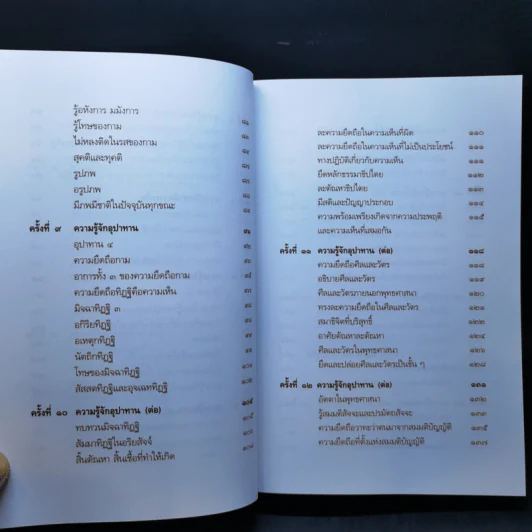 รู้อหังการ มมังการ
รู้โทษของกาม
ไม่หลงติดในรสของกาม
สุคติและทุคติ
รูปภพ
อรูปภพ
มีภพมีชาติในปัจจุบันทุกขณะ
ครั้งที่ ๙ ความรู้จักอุปาทาน
อุปาทาน ๔
ความยึดถือกาม
อาการทั้ง ๓ ของความยึดถือกาม
ความยึดถือทิฏฐิคือความเห็น
มิจฉาทิฏฐิ ๓
อกิริยทิฏฐิ
อเหตุกทิฏฐิ
นัตถิกทิฏฐิ
โทษของมิจฉาทิฏฐิ
สัสสตทิฏฐิและอุจเฉททิฏฐิ
ครั้งที่ ๑๐ ความรู้จักอุปาทาน (ต่อ) ๑๐๔
ทบทวนมิจฉาทิฏฐิ ๑๐๕
สัมมาทิฏฐิในอริยสัจจ์
สิ้นตัณหา สิ้นเชื้อที่ทำให้เกิด
ละความยึดถือในความเห็นที่ผิด ๑๑๐
ละความยึดถือในความเห็นที่ไม่เป็นประโยชน์ ๑๑๑
ทางปฏิบัติเกี่ยวกับความเห็น ๑๑๑
ยึดหลักธรรมาธิปไตย ๑๑๒
ละตัณหาธิปไตย ๑๑๔
มีสติและปัญญาประกอบ ๑๑๔
ความพร้อมเพรียงเกิดจากความประพฤติ ๑๑๕
และความเห็นที่เสมอกัน
ครั้งที่ ๑๑ ความรู้จักอุปาทาน (ต่อ) ๑๑๘
ความยึดถือศีลและวัตร ๑๑๘
อธิบายศีลและวัตร ๑๑๙
ศีลและวัตรภายนอกพุทธศาสนา ๑๒๐
ทรงละความยึดถือในศีลและวัตร ๑๒๑
สมาธิจิตที่บริสุทธิ์ ๑๒๒
อาศัยตัณหาละตัณหา ๑๒๔
ศีลและวัตรในพุทธศาสนา ๑๒๖
ยึดและปล่อยศีลและวัตรเป็นชั้น ๆ ๑๒๘
ครั้งที่ ๑๒ ความรู้จักอุปาทาน (ต่อ) ๑๓๑
อัตตาในพุทธศาสนา ๑๓๒
รู้สมมติสัจจะและปรมัตถสัจจะ ๑๓๓
ความยึดถือวาทะว่าตนมาจากสมมติบัญญัติ ๑๓๕
ความยึดถือที่ตั้งแห่งสมมติบัญญัติ ๑๓๗